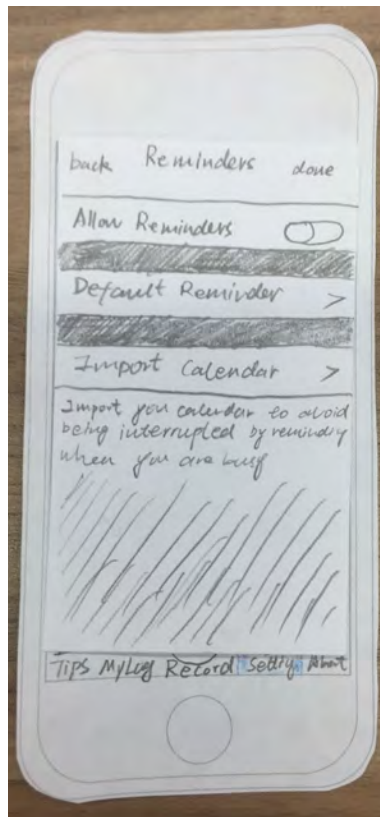 back Reminders done
Allow Reminders
Default Reminder >
Import Calendar >
Import you calendar to avoid
being interrupted by
when you are busy
Tips MyLog Record Setting About